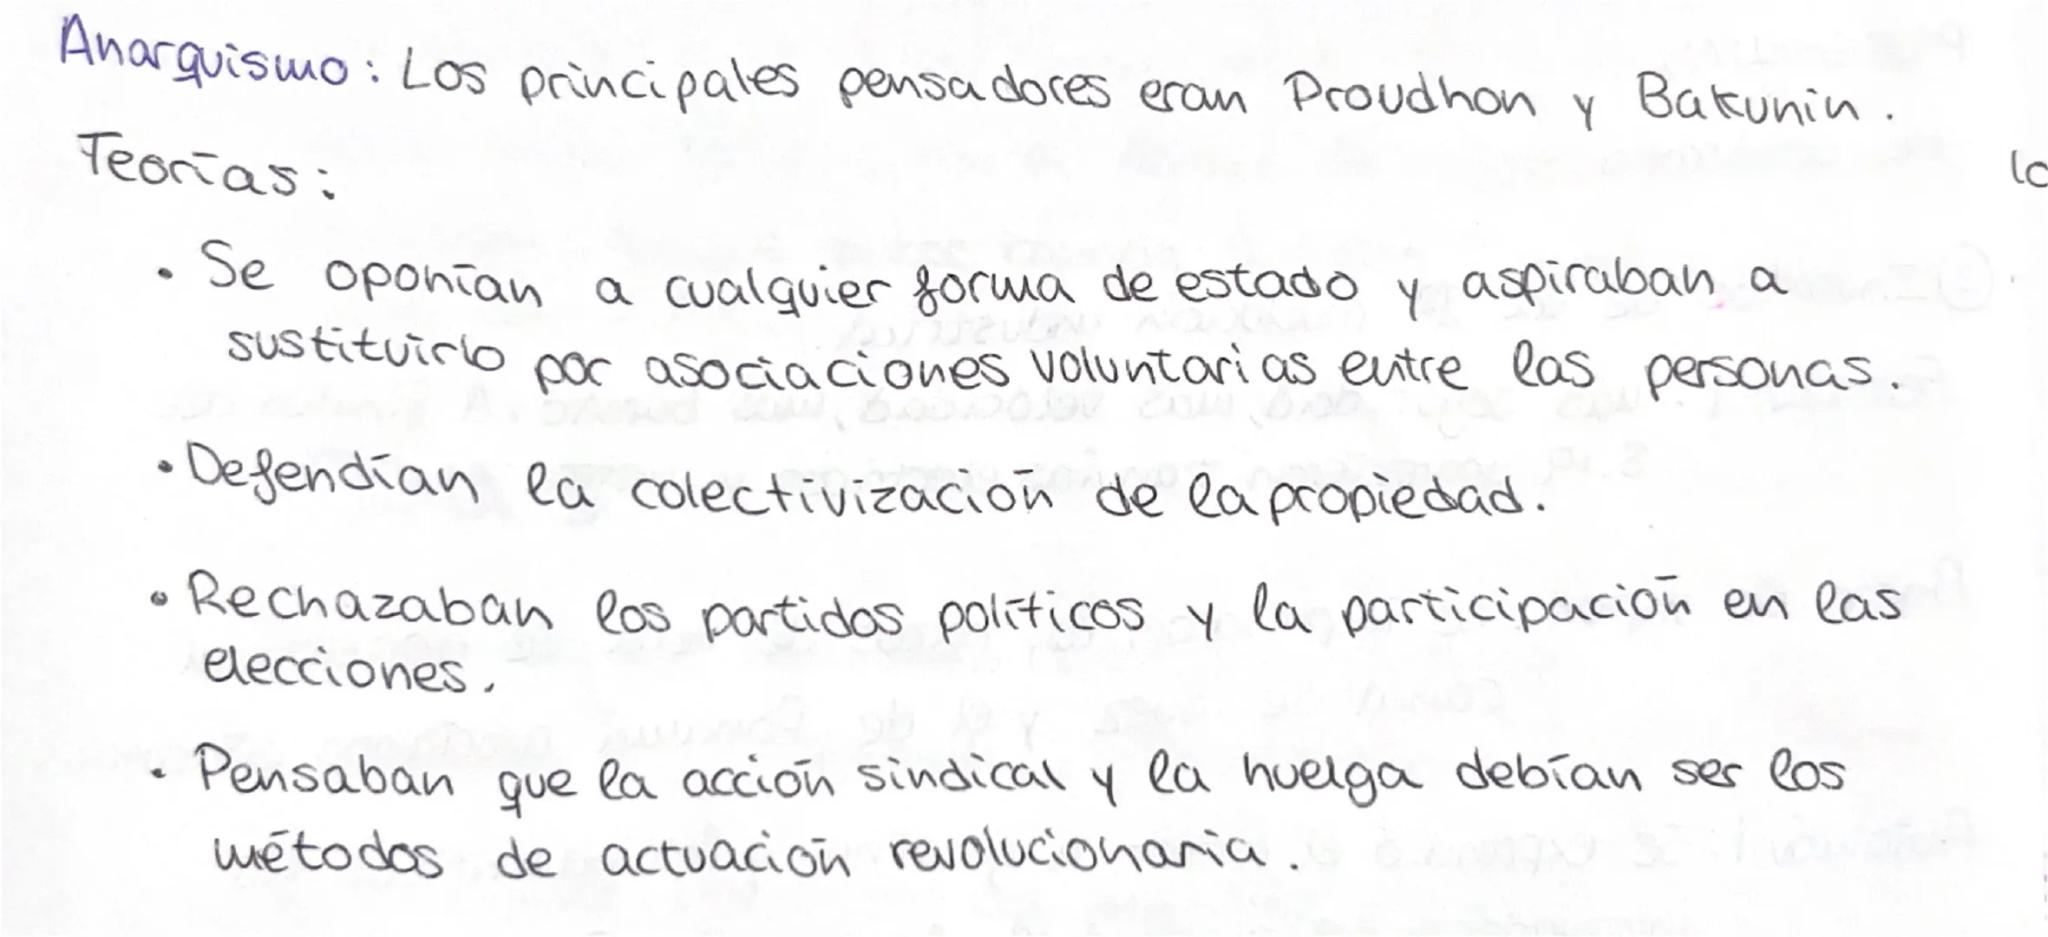 Anarquismo: Los principales pensadores eran Proudhon y Bakunin.
Teorías:
• Se oponían a cualquier forma de estado y aspiraban a
sustituirlo por asociaciones voluntarias entre las personas.
• Defendían la colectivización de la propiedad.
• Rechazaban los partidos políticos y la participación en las
elecciones.
• Pensaban que la acción sindical y la huelga debían ser los
métodos de actuación revolucionaria.